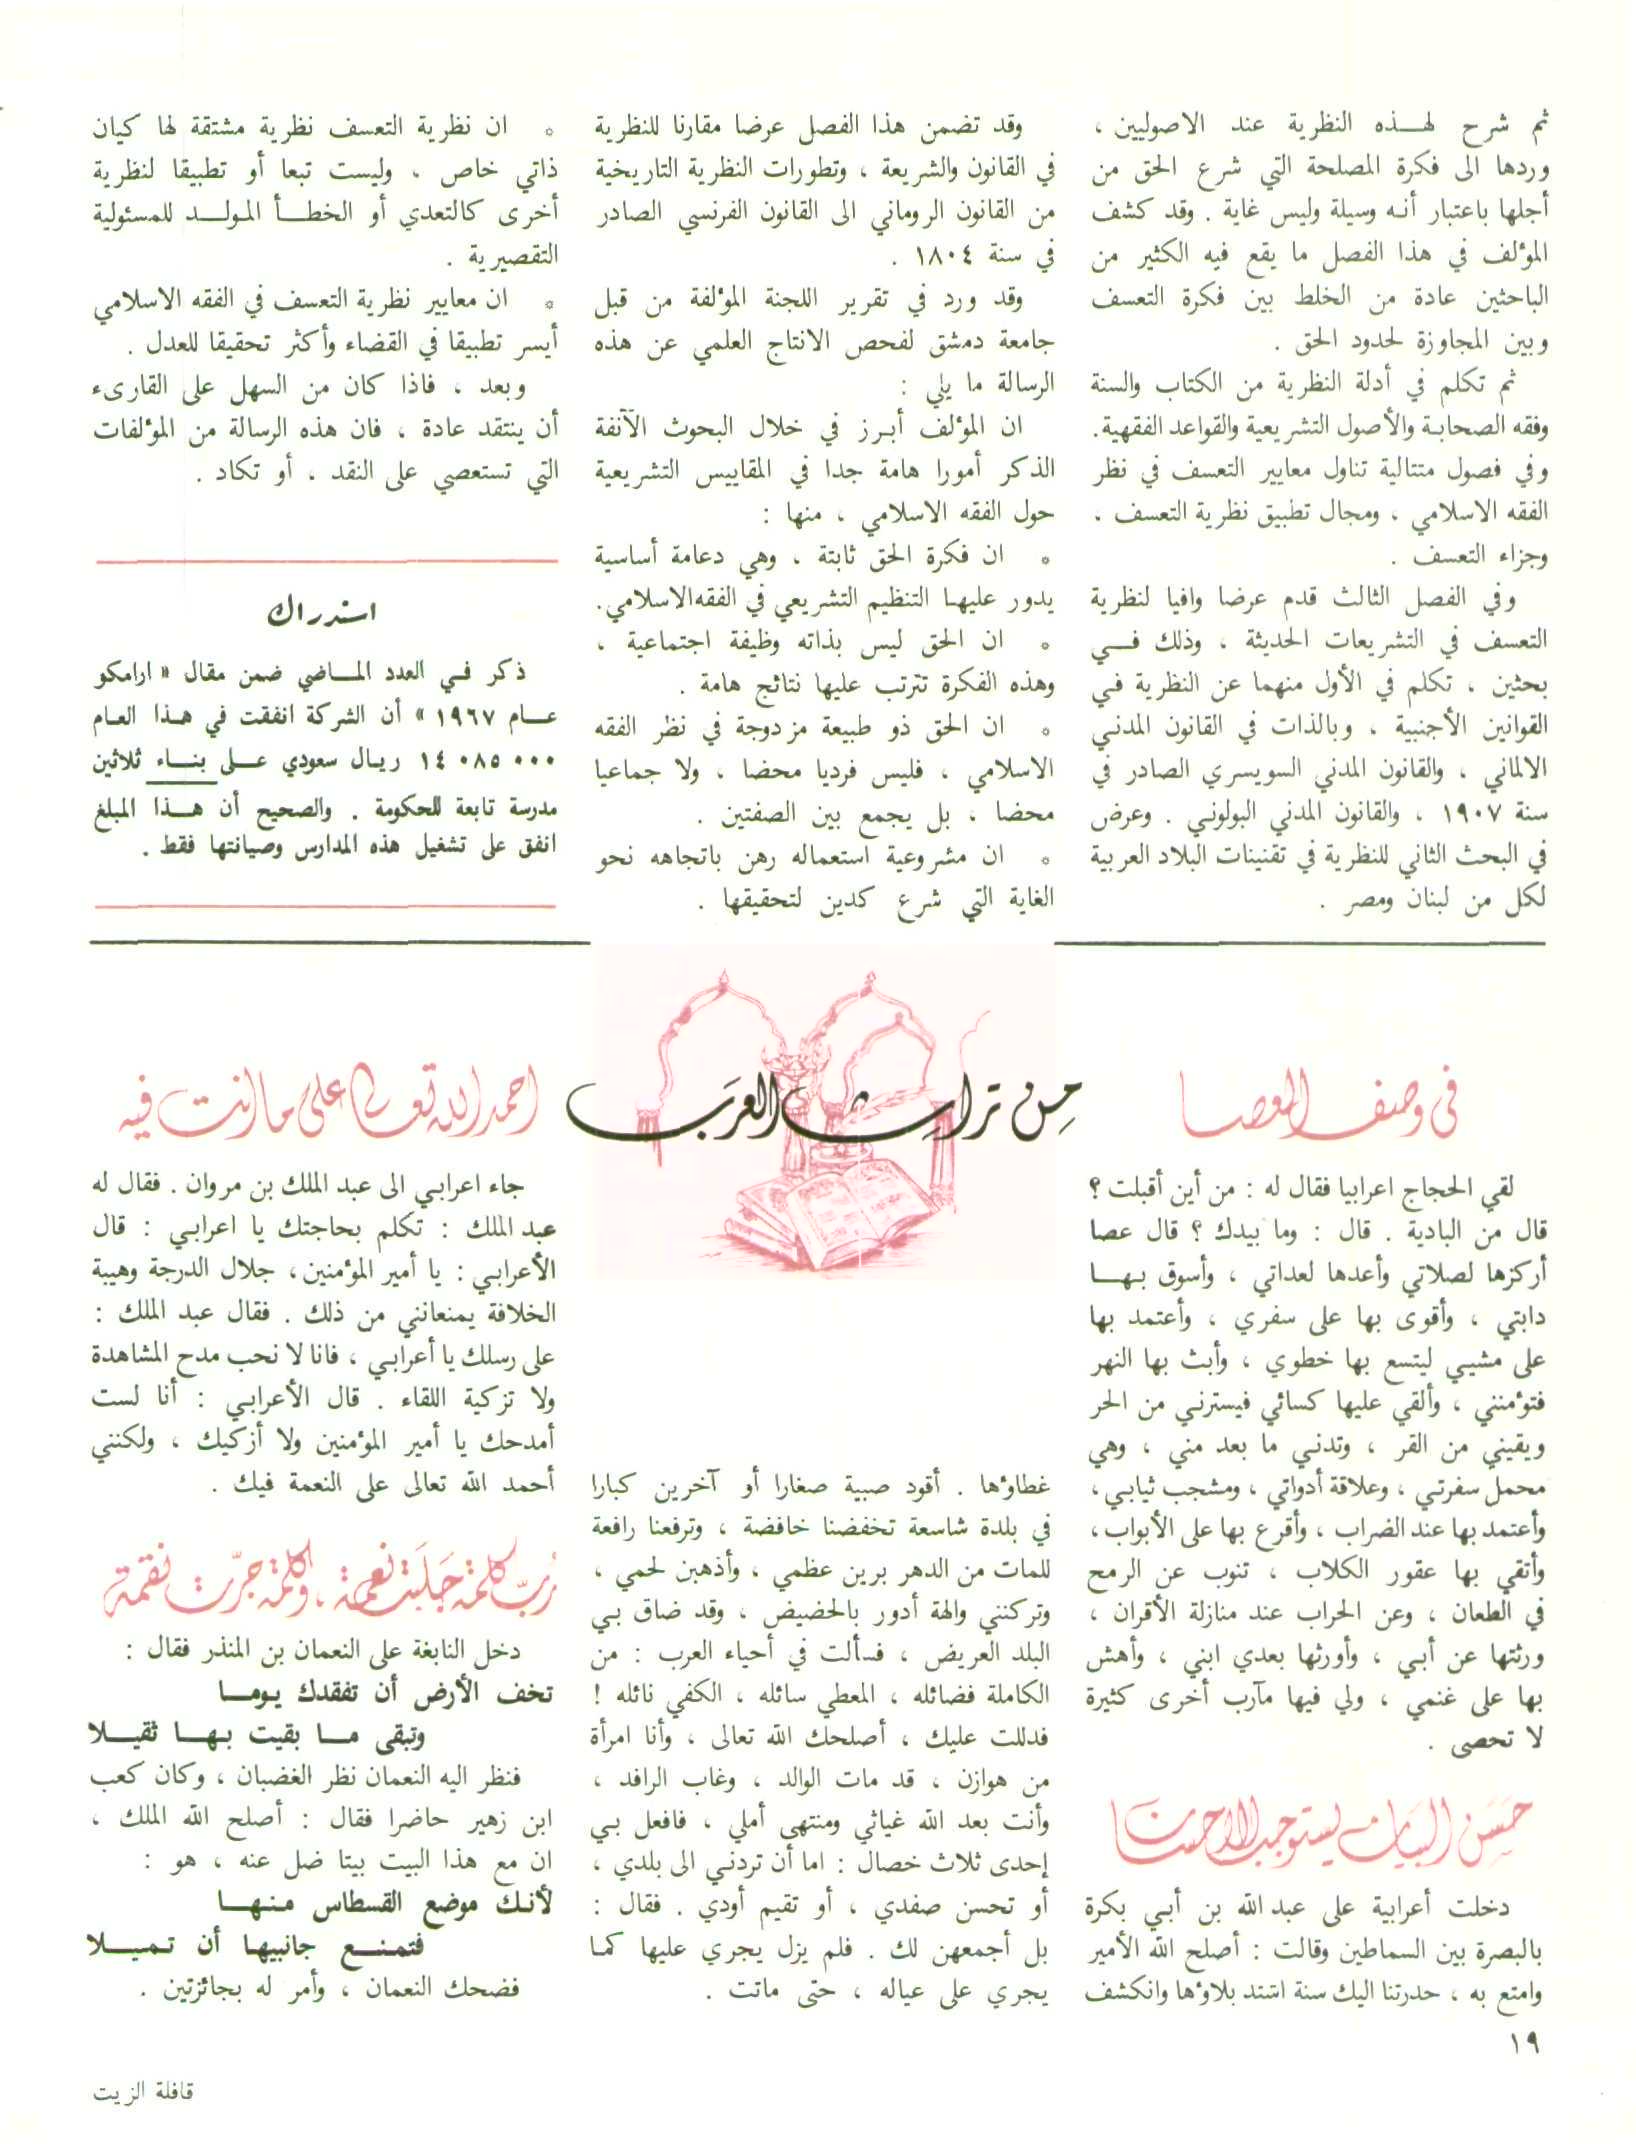 ثم شرح لهذه النظرية عند الاصوليين ،
وردها الى فكرة المصلحة التي شرع الحق من
أجلها باعتبار أنه وسيلة وليس غاية . وقد كشف
المؤلف في هذا الفصل ما يقع فيه الكثير من
الباحثين عادة من الخلط بين فكرة التعسف
وبين المجاوزة لحدود الحق .
ثم تكلم في أدلة النظرية من الكتاب والسنة
وفقه الصحابة والأصول التشريعية والقواعد الفقهية.
وفي فصول متتالية تناول معايير التعسف في نظر
الفقه الاسلامي ، ومجال تطبيق نظرية التعسف ،
وجزاء التعسف .
وفي الفصل الثالث قدم عرضا وافيا لنظرية
التعسف في التشريعات الحديثة ، وذلك في
بحثين ، تكلم في الأول منهما عن النظرية في
القوانين الأجنبية ، وبالذات في القانون المدني
الالماني ، والقانون المدني السويسري الصادر في
سنة ١٩٠٧ ، والقانون المدني البولوني . وعرض
في البحث الثاني للنظرية في تقنينات البلاد العربية
لكل من لبنان ومصر .
وقد تضمن هذا الفصل عرضا مقارنا للنظرية
في القانون والشريعة ، وتطورات النظرية التاريخية
من القانون الروماني الى القانون الفرنسي الصادر
في سنة ١٨٠٤ .
وقد ورد في تقرير اللجنة المؤلفة من قبل
جامعة دمشق لفحص الانتاج العلمي عن هذه
الرسالة ما يلي :
ان المؤلف أبرز في خلال البحوث الآنفة
الذكر أمورا هامة جدا في المقاييس التشريعية
حول الفقه الاسلامي ، منها :
* ان فكرة الحق ثابتة ، وهي دعامة أساسية
يدور عليها التنظيم التشريعي في الفقه الاسلامي.
* ان الحق ليس بذاته وظيفة اجتماعية ،
وهذه الفكرة تترتب عليها نتائج هامة .
* ان الحق ذو طبيعة مزدوجة في نظر الفقه
الاسلامي ، فليس فرديا محضا ، ولا جماعيا
محضا ، بل يجمع بين الصفتين .
* ان مشروعية استعماله رهن باتجاهه نحو
الغاية التي شرع كدين لتحقيقها .
* ان نظرية التعسف نظرية مشتقة لها كيان
ذاتي خاص ، وليست تبعا أو تطبيقا لنظرية
أخرى كالتعدي أو الخطأ المولد للمسئولية
التقصيرية .
* ان معايير نظرية التعسف في الفقه الاسلامي
أيسر تطبيقا في القضاء وأكثر تحقيقا للعدل .
وبعد ، فاذا كان من السهل على القارىء
أن ينتقد عادة ، فان هذه الرسالة من المؤلفات
التي تستعصي على النقد ، أو تكاد .
استدراك
ذكر في العدد الماضي ضمن مقال « ارامكو
عام ١٩٦٧ » أن الشركة انفقت في هذا العام
١٤٠٨٥٠٠٠ ريال سعودي على بناء ثلاثين
مدرسة تابعة للحكومة . والصحيح أن هذا المبلغ
انفق على تشغيل هذه المدارس وصيانتها فقط .
من تراث العرب
في وصف العصا
لقي الحجاج اعرابيا فقال له : من أين أقبلت ؟
قال من البادية . قال : وما بيدك ؟ قال عصا
أركزها لصلاتي وأعدها لعداتي ، وأسوق بها
دابتي ، وأقوى بها على سفري ، وأعتمد بها
على مشيي ليتسع بها خطوي ، وأبث بها النهر
فتؤمنني ، وألقي عليها كسائي فيسترني من الحر
ويقيني من القر ، وتدني ما بعد مني ، وهي
محمل سفرتي ، وعلاقة أدواتي ، ومشجب ثيابي ،
وأعتمد بها عند الضراب ، وأقرع بها على الأبواب،
وأتقي بها عقور الكلاب ، تنوب عن الرمح
في الطعان ، وعن الحراب عند منازلة الأقران ،
ورثتها عن أبي ، وأورثها بعدي ابني ، وأهش
بها على غنمي ، ولي فيها مآرب أخرى كثيرة
لا تحصى .
حسن البيان يستوجب الاحسان
دخلت أعرابية على عبد الله بن أبي بكرة
بالبصرة بين السماطين وقالت : أصلح الله الأمير
وامتع به ، حدرتنا اليك سنة اشتد بلاؤها وانكشف
غطاؤها . أقود صبية صغارا أو آخرين كبارا
في بلدة شاسعة تخفضنا خافضة ، وترفعنا رافعة
للمات من الدهر برين عظمي ، وأذهبن لحمي ،
وتركنني والهة أدور بالحضيض ، وقد ضاق بي
البلد العريض ، فسألت في أحياء العرب : من
الكاملة فضائله ، المعطي سائله ، الكفي نائله !
فدللت عليك ، أصلحك الله تعالى ، وأنا امرأة
من هوازن ، قد مات الوالد ، وغاب الرافد ،
وأنت بعد الله غياثي ومنتهى أملي ، فافعل بي
إحدى ثلاث خصال : اما أن تردني الى بلدي ،
أو تحسن صفدي ، أو تقيم أودي . فقال :
بل أجمعهن لك . فلم يزل يجري عليها كما
يجري على عياله ، حتى ماتت .
احمد الله تعالى على ما انت فيه
جاء اعرابي الى عبد الملك بن مروان . فقال له
عبد الملك : تكلم بحاجتك يا اعرابي : قال
الأعرابي : يا أمير المؤمنين، جلال الدرجة وهيبة
الخلافة يمنعانني من ذلك . فقال عبد الملك :
على رسلك يا أعرابي ، فانا لا نحب مدح المشاهدة
ولا تزكية اللقاء . قال الأعرابي : أنا لست
أمدحك يا أمير المؤمنين ولا أزكيك ، ولكنني
أحمد الله تعالى على النعمة فيك .
رب كلمة جلبت نعمة ، وكلمة جرت نقمة
دخل النابغة على النعمان بن المنذر فقال :
تخف الأرض أن تفقدك يوما
وتبقى ما بقيت بها ثقيلا
فنظر اليه النعمان نظر الغضبان ، وكان كعب
ابن زهير حاضرا فقال : أصلح الله الملك ،
ان مع هذا البيت بيتا ضل عنه ، هو :
لأنك موضع القسطاس منها
فتمنع جانبيها أن تميلا
فضحك النعمان ، وأمر له بجائزتين .
١٩
قافلة الزيت